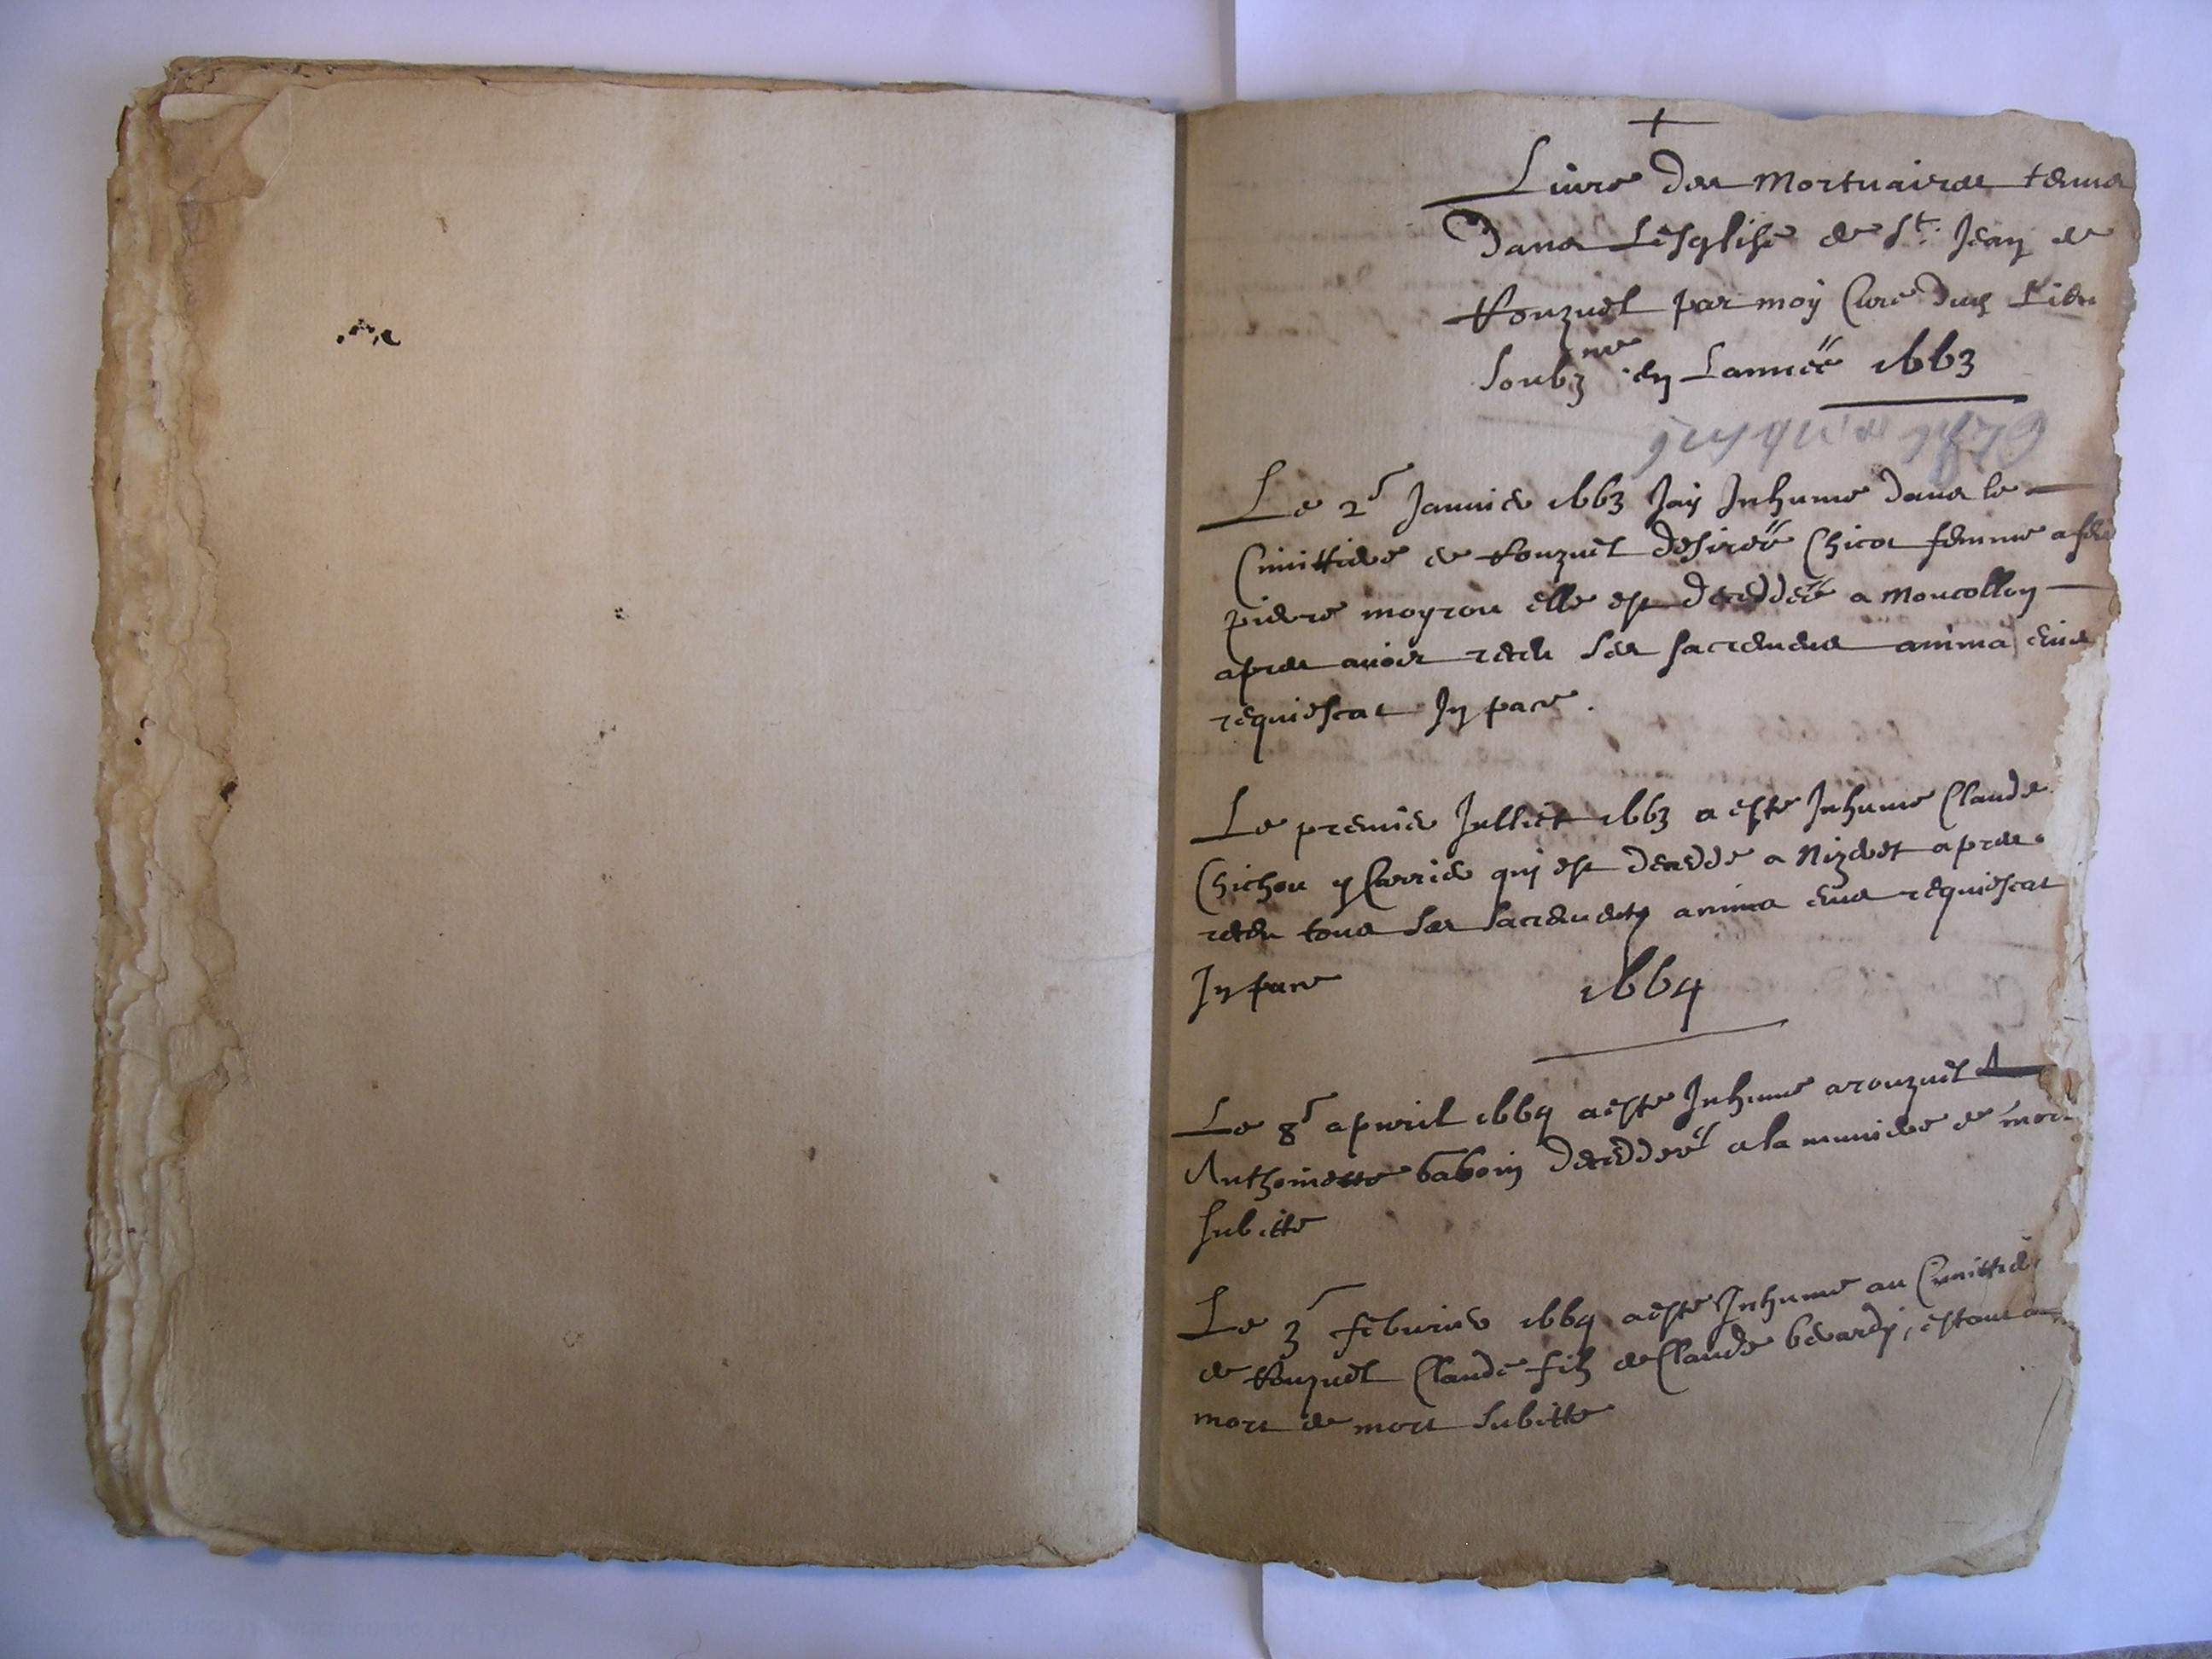 +
Livre des Mortuaires tenus
Dans Lesglise de St. Jean de
Rouzuel par moy Curé dud Lieu
soubz ne en Lannéé 1663
Le 2r Janvier 1663 Jay Inhume dans le
Cimittiere de Rouzuel desiréé Chicot femme a feu
pierre moyrou elle est deceddéé a Moucollon
apres avoir receu ses sacremens anima eius
requiescat In pace.
Le premier Julliet 1663 a esté Inhume Claude
Chichou qui est decedde a Nizeret apres
receu tous ses sacrements anima eius requiescat
In pace
1664
Le 8r apvril 1664 a esté Inhume a rouzuel
Anthoinette baboin deceddéé a la muniere de mort
subitte
Le 3r febvrier 1664 a esté Inhume au Cimittiere
de Rouzuel Claude filz de Claude berardy, estant
mort de mort subitte